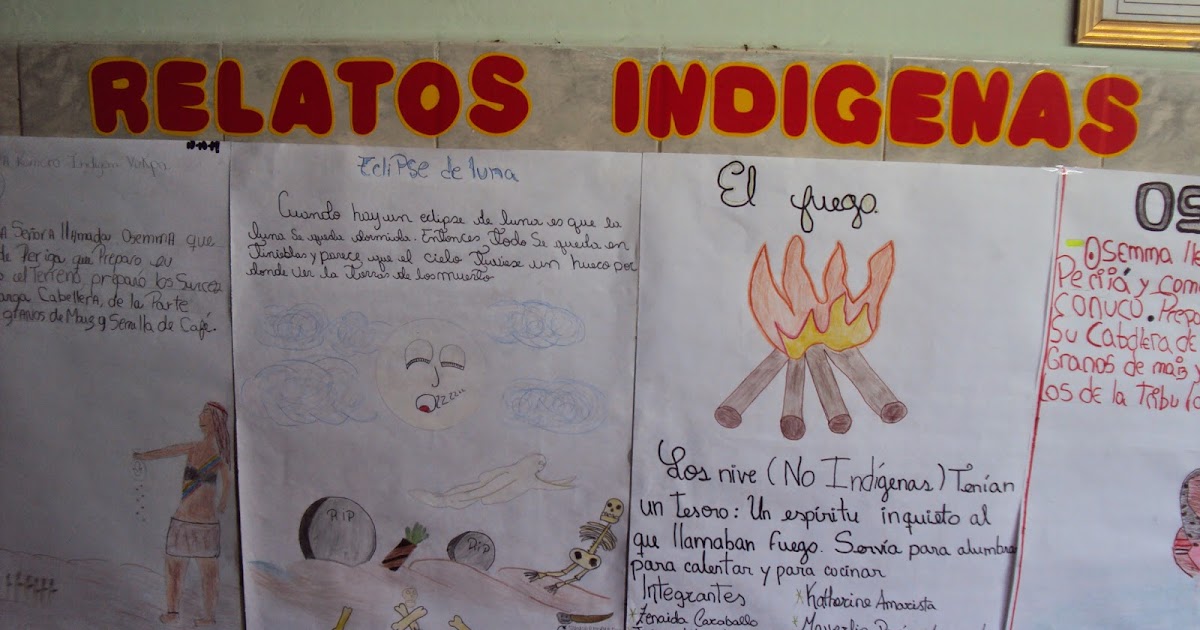 RELATOS INDIGENAS
Romero Indígena Yukpa
A Señora llamada Osemma que
de Perija que Preparo su
el Terreno preparó los Surcos
arga Cabellera, de la Parte
granos de Maiz y Semilla de Café.
Eclipse de luna
Cuando hay un eclipse de luna es que la
luna se queda dormida. Entonces todo se queda en
tinieblas y parece que el cielo tuviese un hueco por
donde ver la tierra de los muerto
zzzzz
RIP
RIP
El fuego
Los nive (No Indígenas) Tenían
un Tesoro: Un espíritu inquieto al
que llamaban Fuego. Servía para alumbra
para calentar y para cocinar
Integrantes
*Zenaida Caraballo
*Katherine Amarista
*Mayerlin
Os
-Osemma lle
Perijá y com
conuco. Prepa
Su Cabellera de
Granos de maiz y
Los de la Tribu